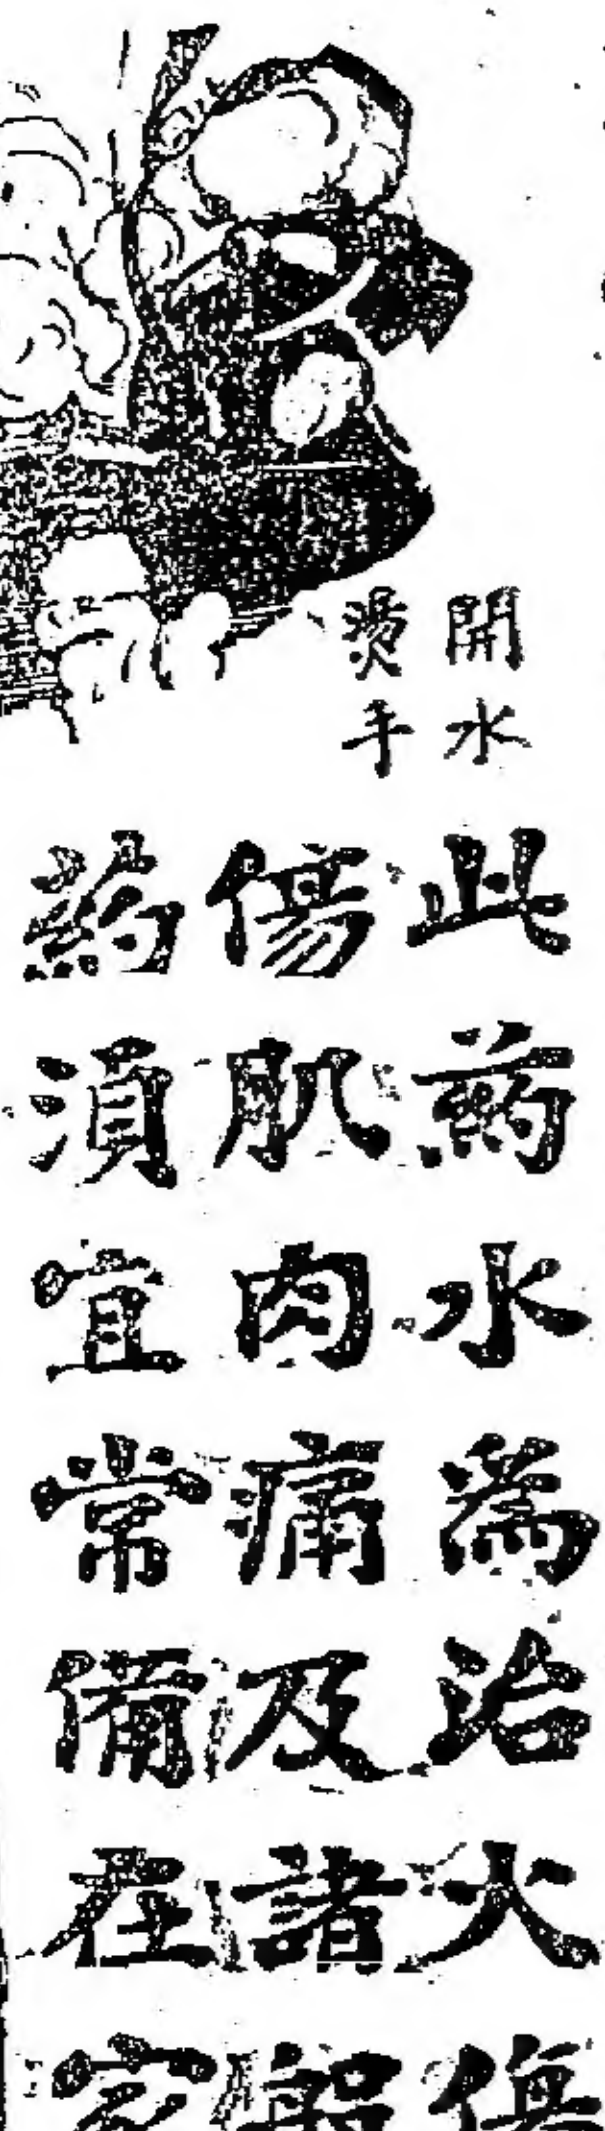 開水
燙手
此藥水為治火傷
傷肌肉痛及諸
藥須宜常備在家